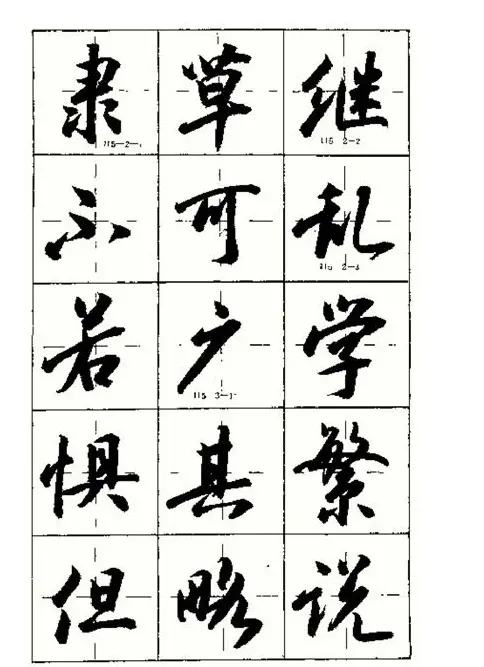 隶草继
115—2—1
115 2—2
不可乱
115 2—3
若广学
115 3—1
惧其繁
但略说